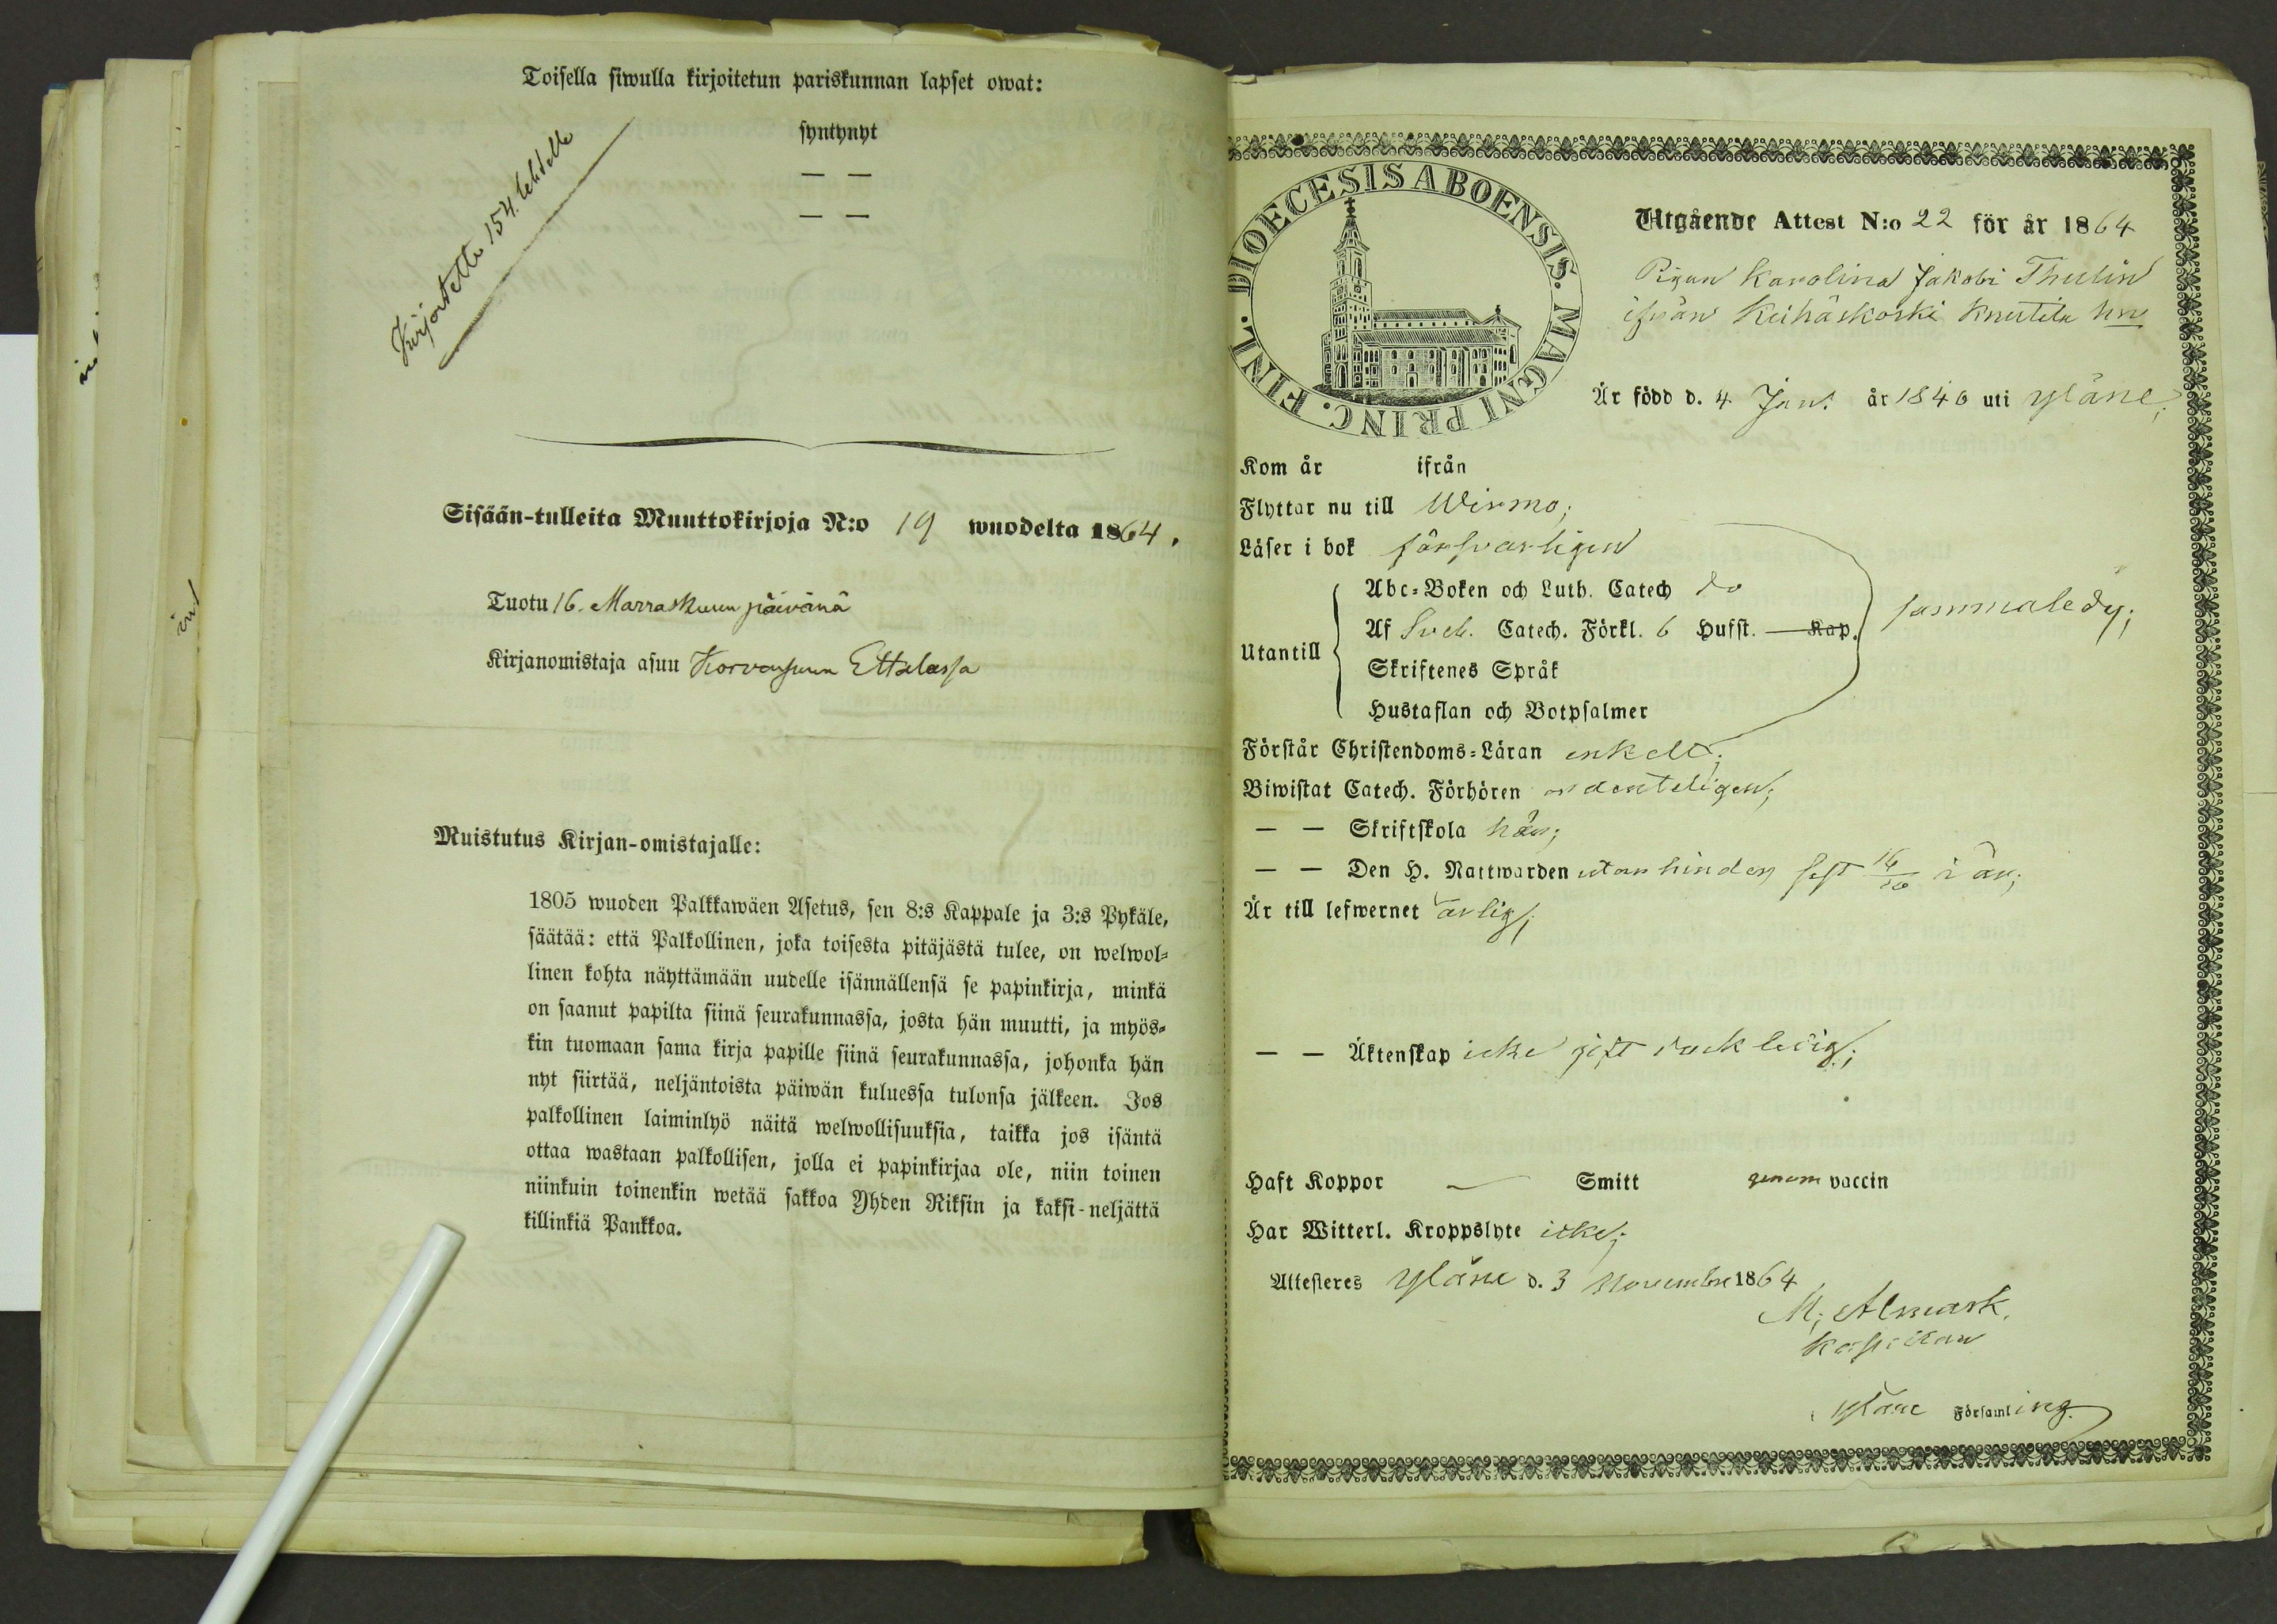 Toisella siwulla kirjoitetun pariskunnan lapset owat:
syntynyt
— —
— —
Kirjoitettu 154. lehdelle
Sisään-tulleita Muuttokirjoja N:o 19 wuodelta 1864.
Tuotu 16. Marraskuun päivänä
Kirjanomistaja asuu Korvensuun Ettalassa
Muistutus Kirjan-omistajalle:
1805 wuoden Palkkawäen Asetus, sen 8:s Kappale ja 3:s Pykäle,
säätää: että Palkollinen, joka toisesta pitäjästä tulee, on welwol-
linen kohta näyttämään uudelle isännällensä se papinkirja, minkä
on saanut papilta siinä seurakunnassa, josta hän muutti, ja myös-
kin tuomaan sama kirja papille siinä seurakunnassa, johonka hän
nyt siirtää, neljäntoista päiwän kuluessa tulonsa jälkeen. Jos
palkollinen laiminlyö näitä welwollisuuksia, taikka jos isäntä
ottaa wastaan palkollisen, jolla ei papinkirjaa ole, niin toinen
niinkuin toinenkin wetää sakkoa Yhden Riksin ja kaksi-neljättä
killinkiä Pankkoa.
FINL. DIOECESIS ABOENSIS. MAGNI PRINC.
Utgående Attest N:o 22 för år 1864
Pigan Karolina Jakobi Thulin
ifrån Keihäskoski Knuutila hn
Är född d. 4 Jan. år 1840 uti Yläne;
Kom år ifrån
Flyttar nu till Wirmo;
Läser i bok försvarligen
Utantill
Abc-Boken och Luth. Catech do
Af Sveb. Catech. Förkl. 6 Hufst. — Kap.
Skriftenes Språk
Hustaflan och Botpsalmer
sammaledes;
Förstår Christendoms-Läran enkelt;
Biwistat Catech. Förhören ordenteligen;
— — Skriftskola här;
— — Den H. Nattwarden utan hinder sist 16/10 i år;
Är till lefwernet ärlig;
— — Äktenskap icke gift dock ledig;
Haft Koppor — Smitt genom vaccin
Har Witterl. Kroppslyte icke;
Attesteres Yläne d. 3 Novembre 1864
M. Almark.
Kapellan
i Yläne Församling.